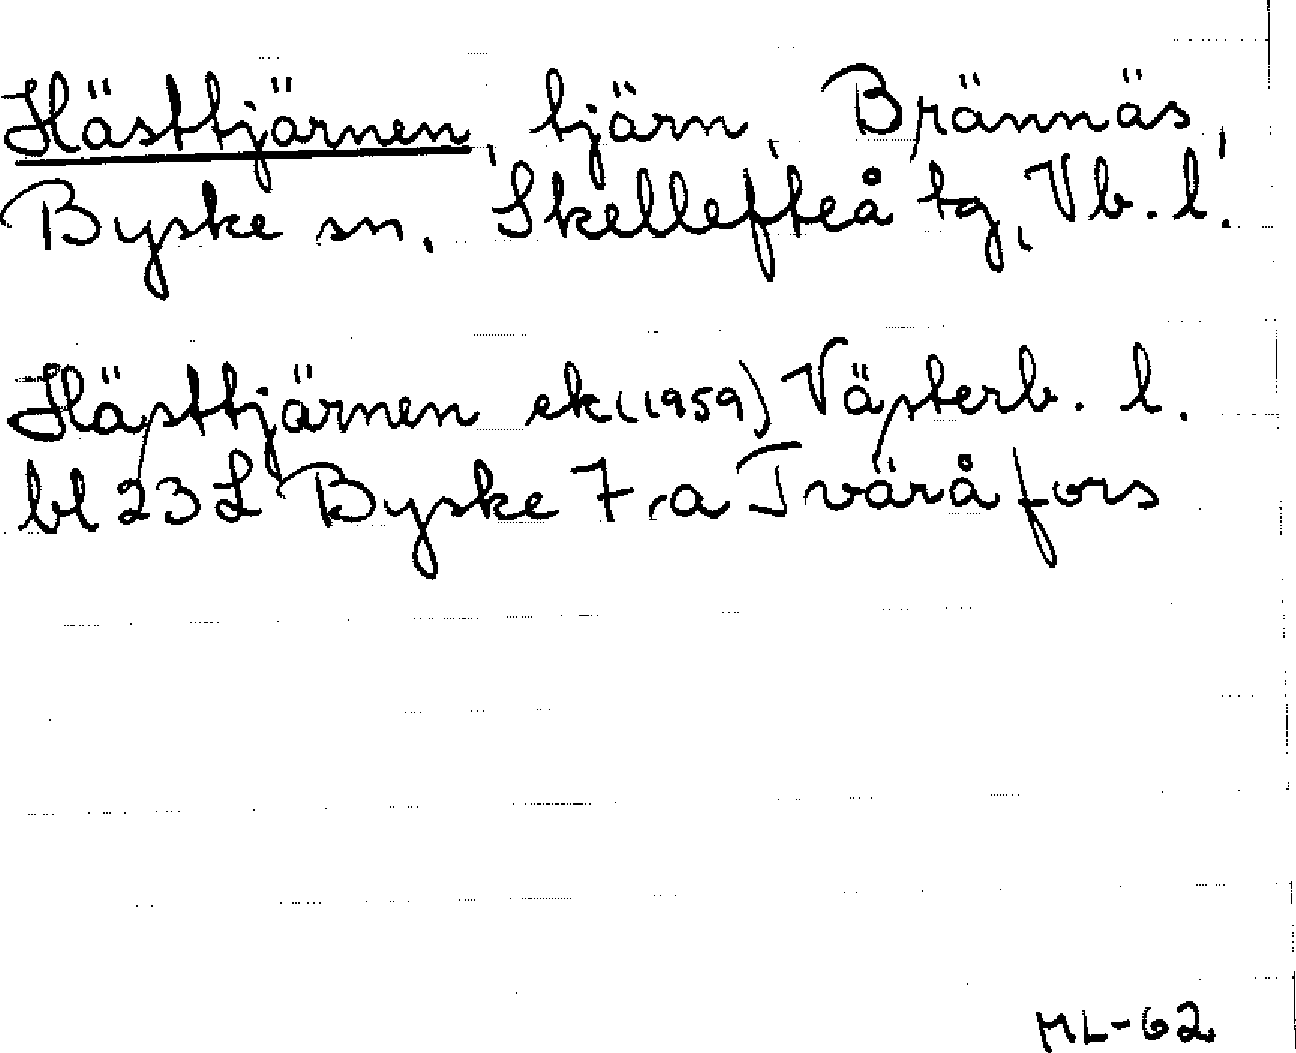 Hästtjärnen, tjärn, Brännäs,
Byske sn, Skellefteå tg, Vb. l.
Hästtjärnen ek (1959) Västerb. l.
bl 23 L Byske 7-a Tväråfors
ML-62